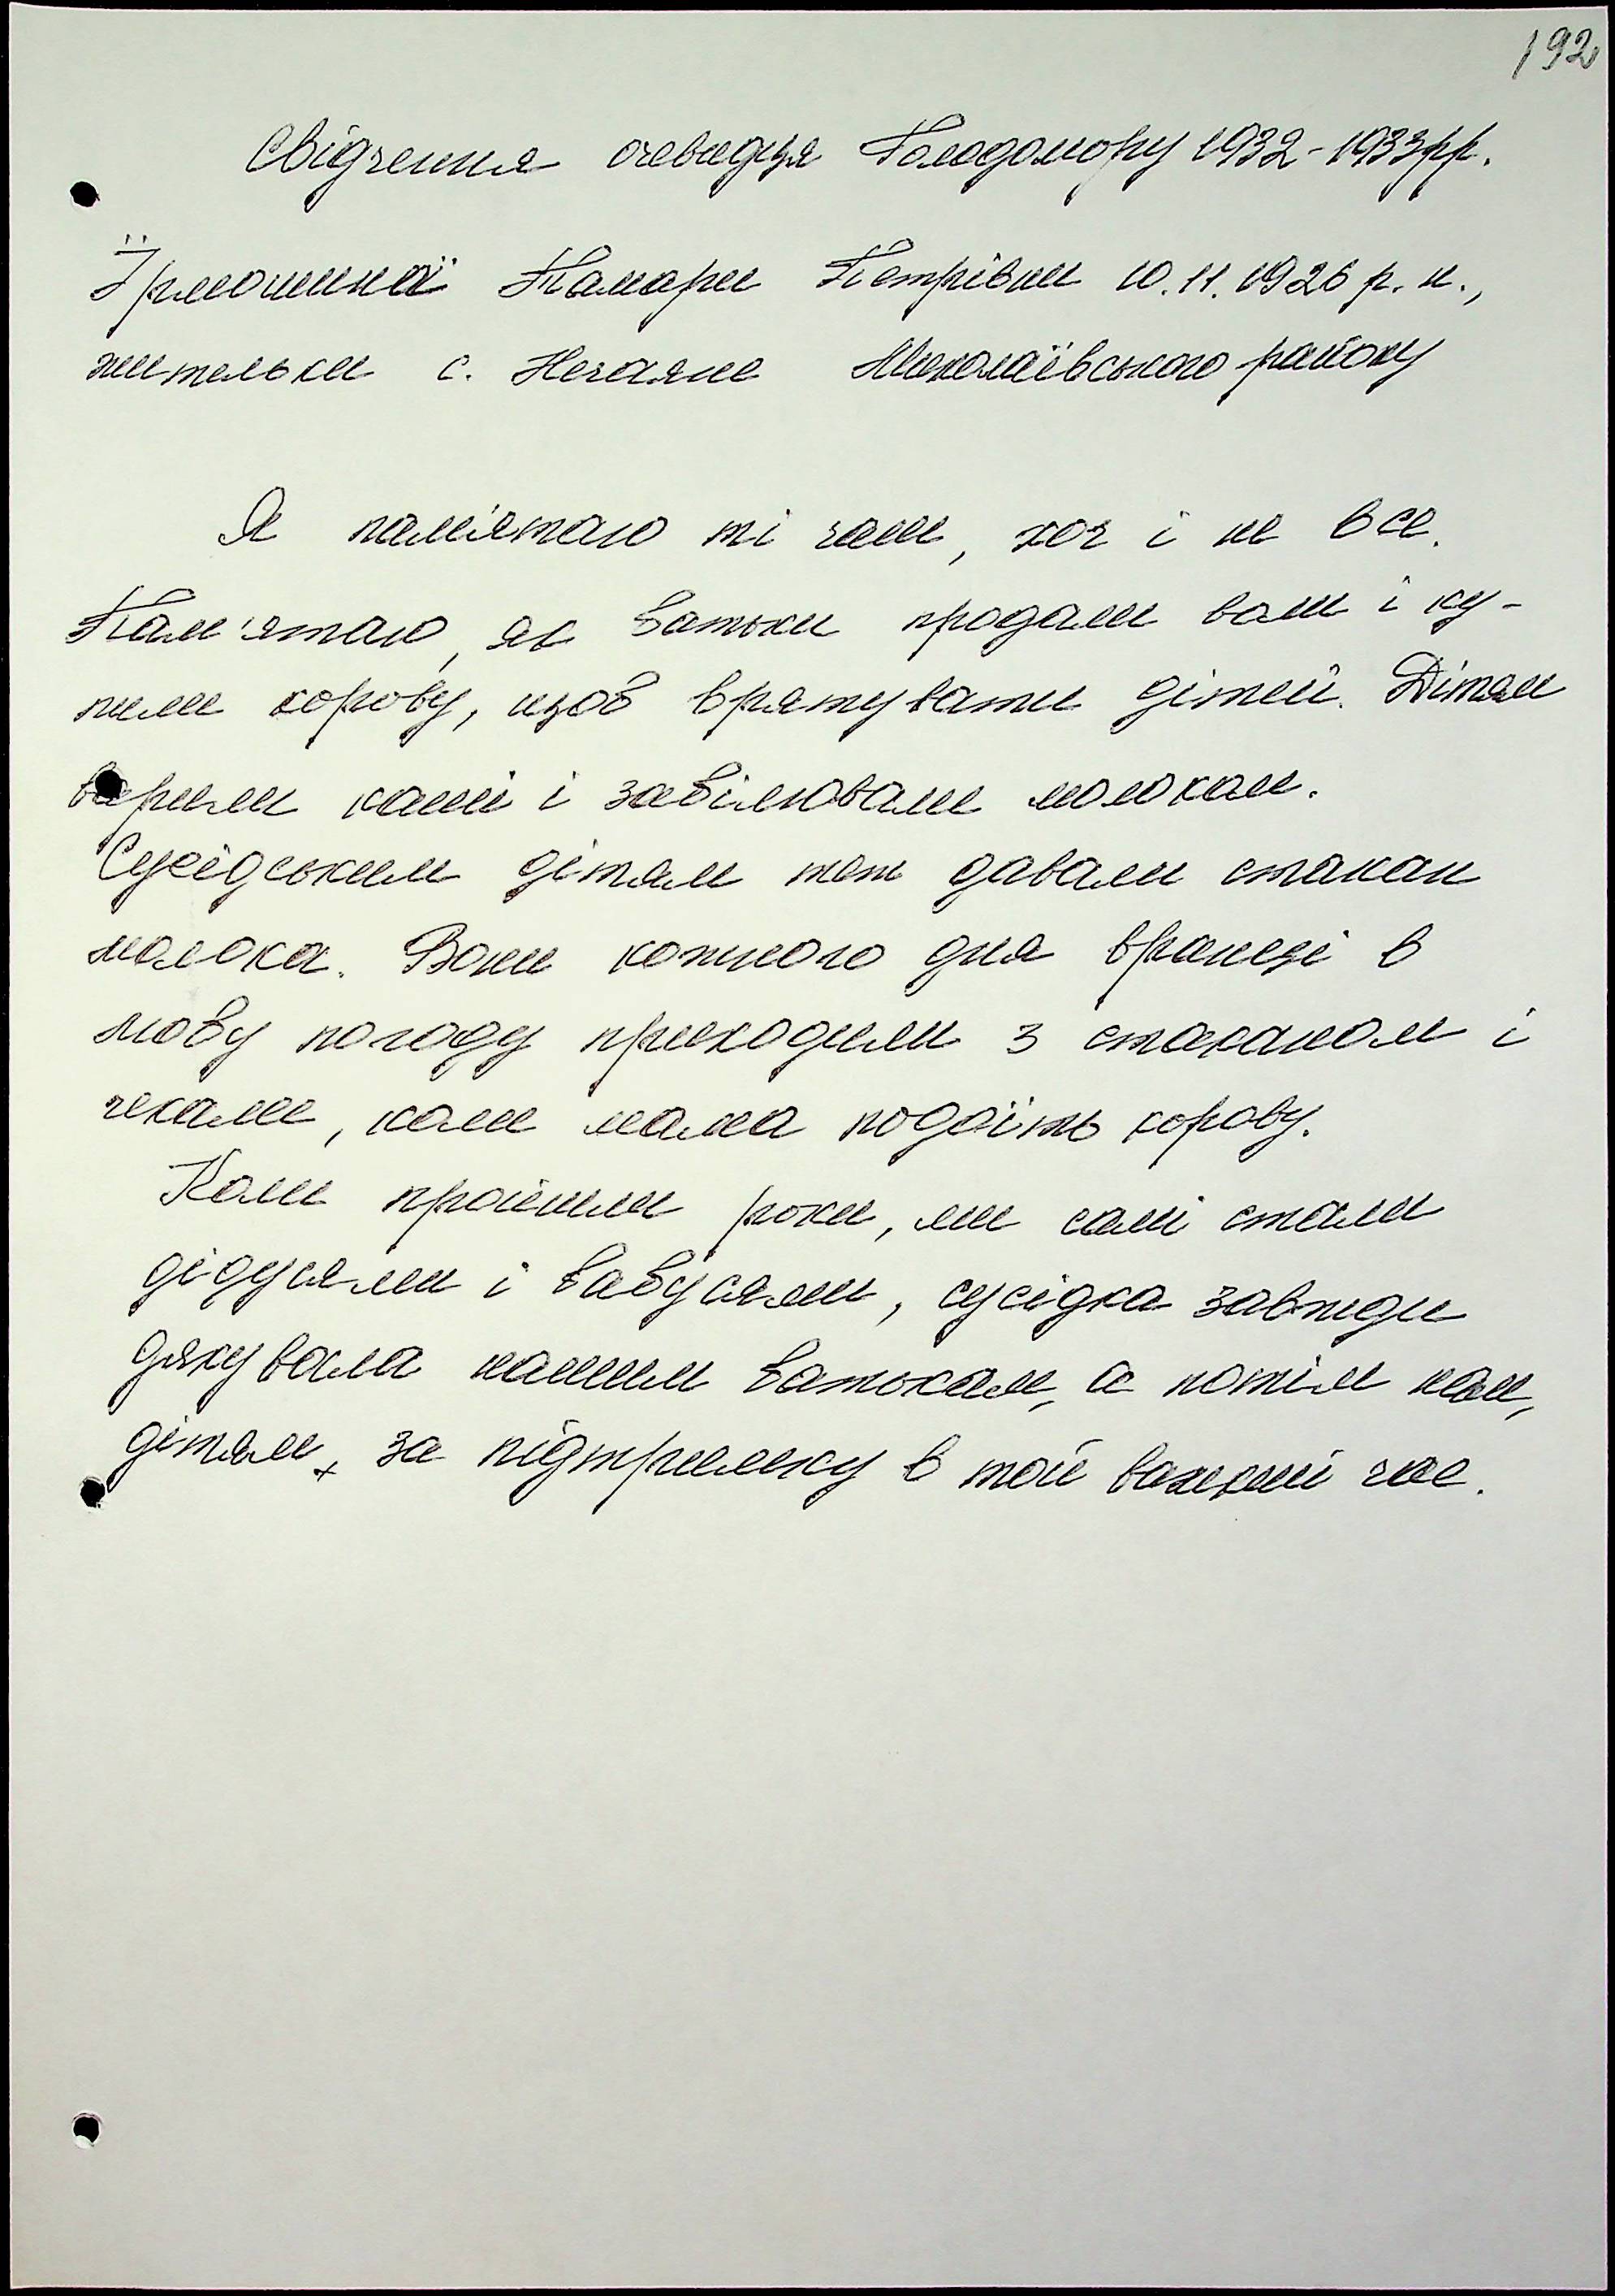 192
Свідчення очевидця Голодомору 1932-1933рр.
Їрмошиної Тамари Петрівни 10.11.1926 р. н.,
жительки с. Нечаяне Миколаївського району
Я пам'ятаю ті часи, хоч і не все.
Пам'ятаю, як батьки продали вали і ку-
пили корову, щоб врятувати дітей. Дітям
варили каші і забілювали молоком.
Сусідським дітям теж давали стакан
молока. Вони кожного дня вранці в
любу погоду приходили з стаканом і
чекали, коли мама подоїть корову.
Коли пройшли роки, ми самі стали
дідусями і бабусями, сусідка завжди
дякувала нашим батькам, а потім нам,
дітям, за підтримку в той важкий час.